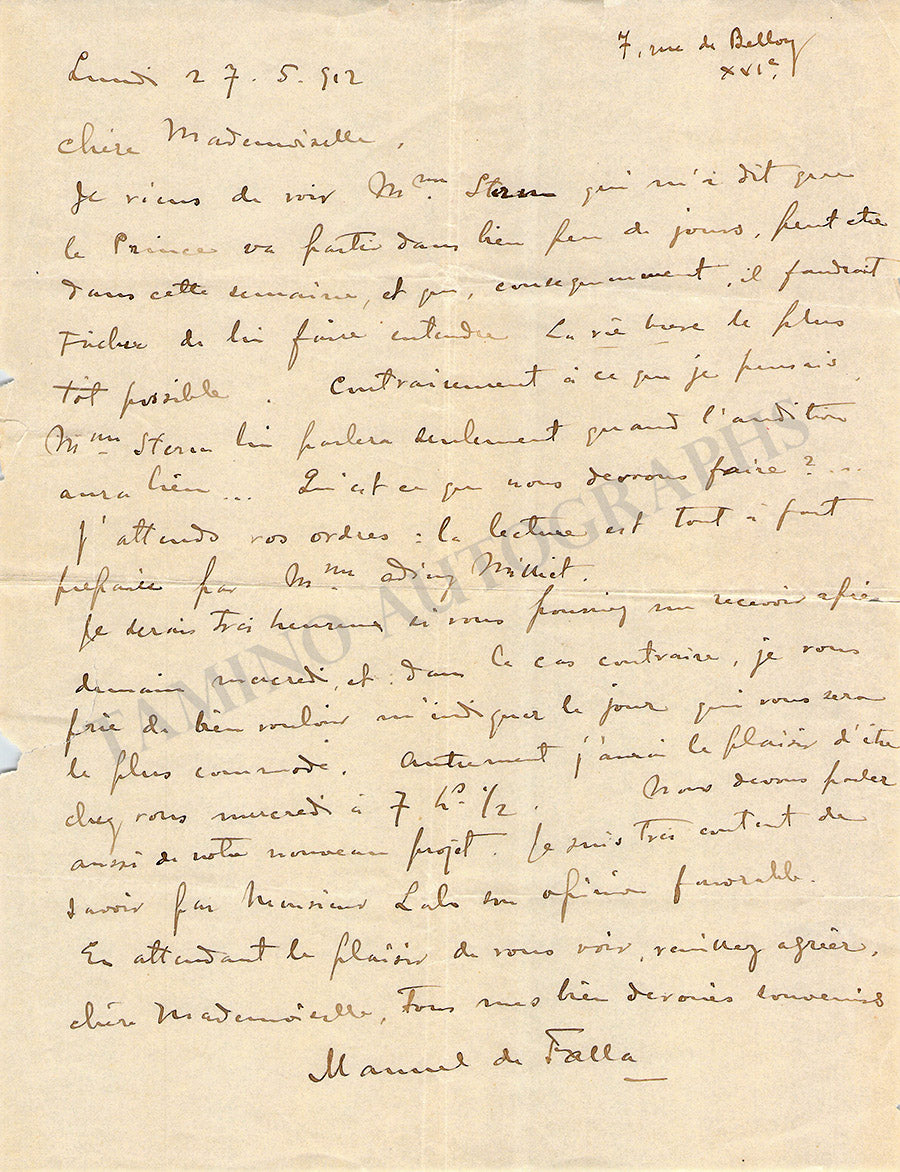 7, rue de Belloy
XVIe.
Lundi 27.5.912
Chère Mademoiselle,
Je viens de voir Mme. Stern qui m'a dit que
le Prince va partir dans bien peu de jours, peut etre
dans cette semaine, et que, consequemment, il faudrait
tâcher de lui faire entendre La vie breve le plus
tôt possible. Contrairement à ce que je pensais,
Mme Stern lui parlera seulement quand l'audition
aura lieu... Qu'est ce que nous devrons faire?...
J'attends vos ordres: la lecture est tout à fait
préparée par Mme Milliet.
Je serais très heureux si vous pouviez me recevoir après
demain mercredi, et, dans le cas contraire, je vous
prie de bien vouloir m'indiquer le jour qui vous sera
le plus commode. Autrement j'aurai le plaisir d'être
chez vous mercredi à 7 hs. 1/2. Nous devons parler
aussi de notre nouveau projet. Je suis très content de
savoir par Monsieur Lalo son opinion favorable.
En attendant le plaisir de vous voir, veuillez agréer,
chère Mademoiselle, tous mes bien devoués souvenirs
Manuel de Falla
TAMINO AUTOGRAPHS